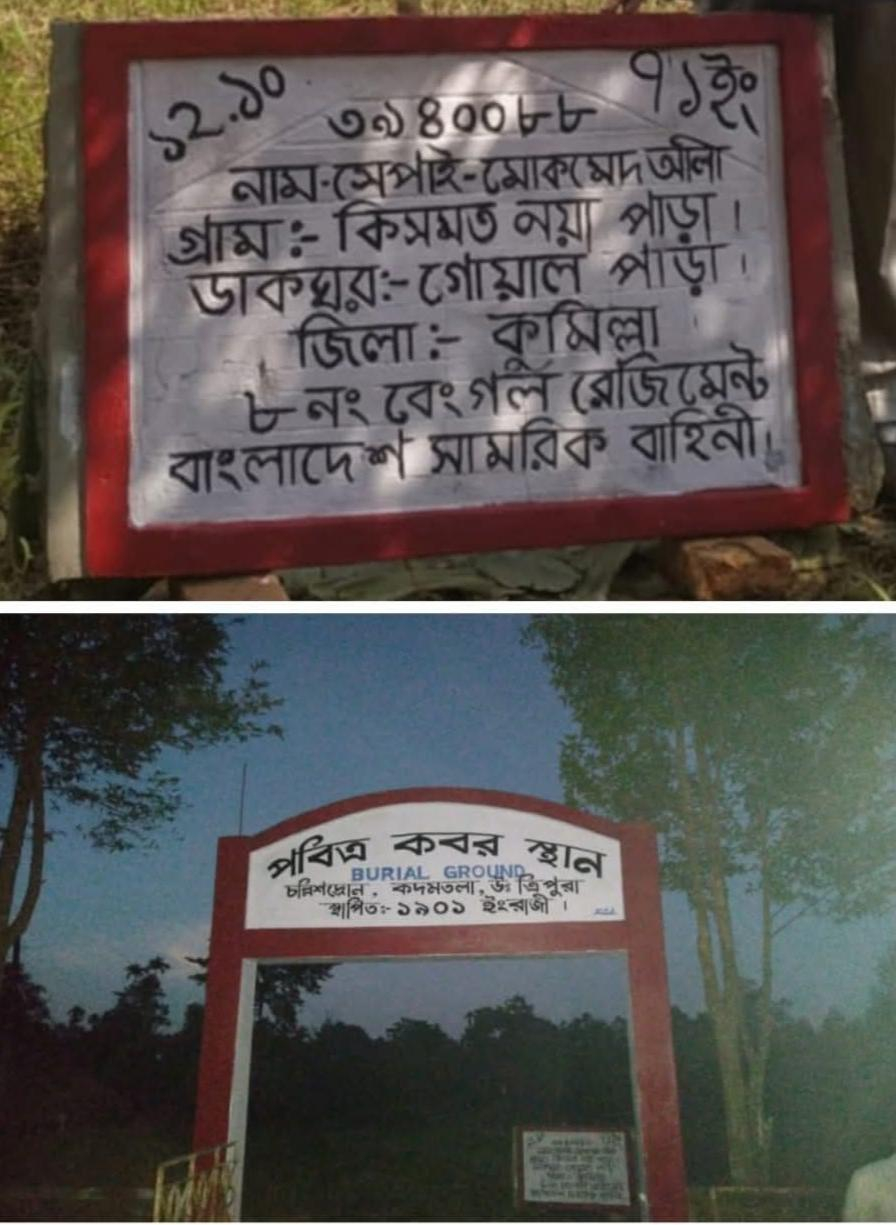 ১২.১০ ৭১ইং
৩৯৪০০৮৮
নাম-সেপাই-মোকমেদ অলি
গ্রাম:- কিসমত নয়া পাড়া।
ডাকঘর:- গোয়াল পাড়া।
জিলা:- কুমিল্লা
৮ নং বেংগল রেজিমেন্ট
বাংলাদেশ সামরিক বাহিনী।
পবিত্র কবর স্থান
BURIAL GROUND
চল্লিশদ্রোন, কদমতলা, উঃ ত্রিপুরা
স্থাপিত:- ১৯০১ ইংরাজী।